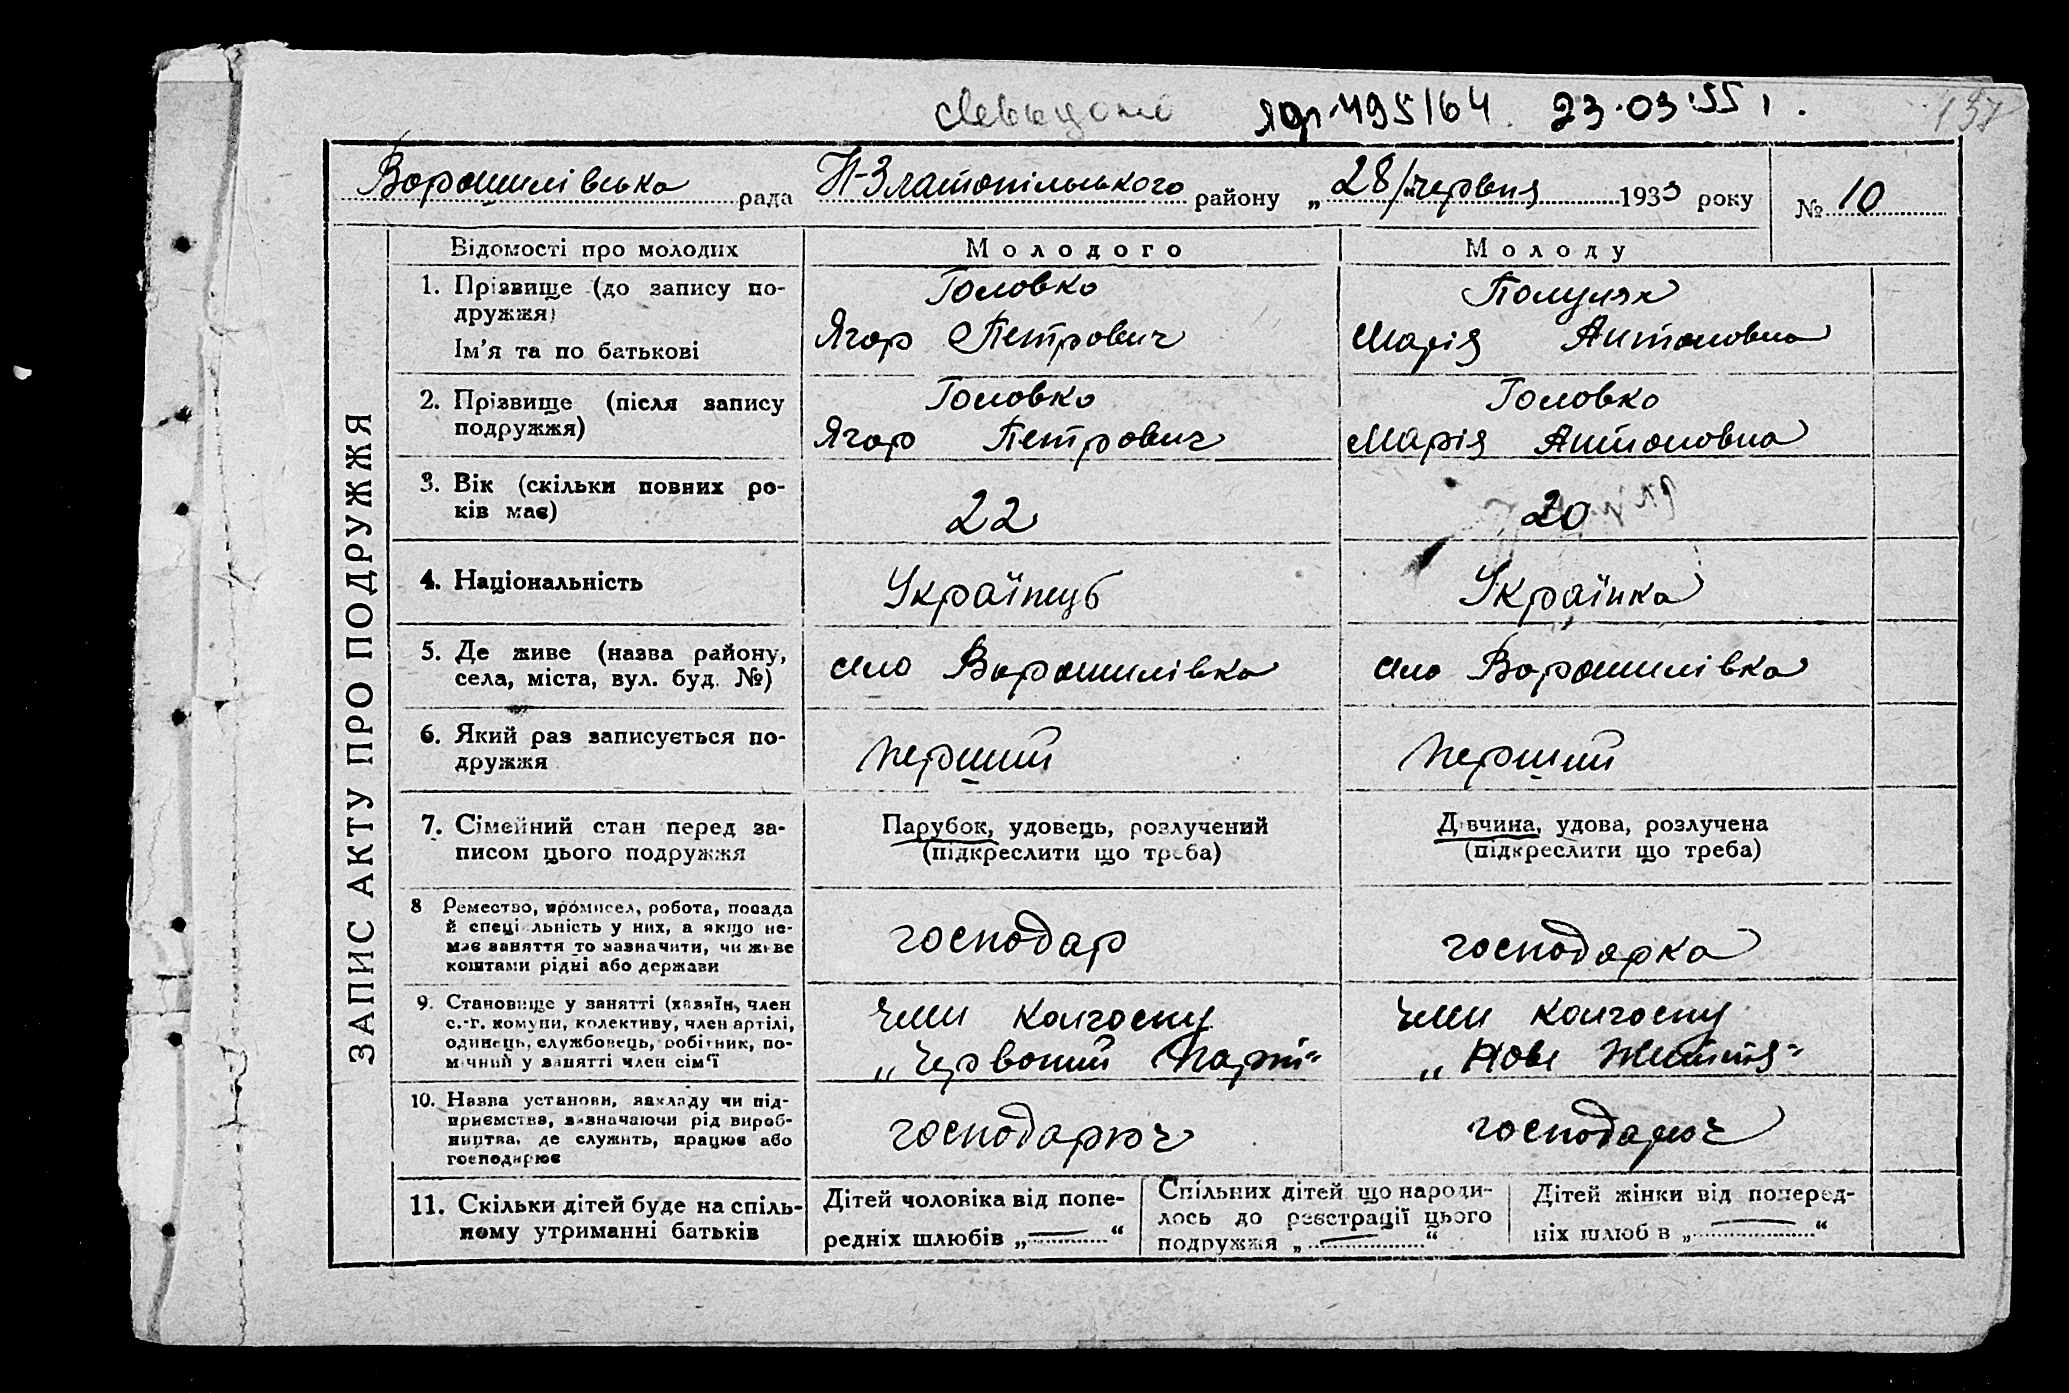 ЯФ 495164. 23.03.55 г.
137
Ворошилівська рада Н-Златопільського району „28/червня 1933 року № 10
ЗАПИС АКТУ ПРО ПОДРУЖЖЯ
Відомості про молодих Молодого Молоду
1. Прізвище (до запису по- Головко Полуляк
дружжя)
Ім'я та по батькові Ягор Петрович Марія Антоновна
2. Прізвище (після запису Головко Головко
подружжя) Ягор Петрович Марія Антоновна
3. Вік (скільки повних ро-
ків має) 22 20
4. Національність Українець Українка
5. Де живе (назва району,
села, міста, вул. буд. №) село Ворошилівка село Ворошилівка
6. Який раз записується по-
дружжя перший перший
7. Сімейний стан перед за- Парубок, удовець, розлучений Дівчина, удова, розлучена
писом цього подружжя (підкреслити що треба) (підкреслити що треба)
8 Ремество, промисел, робота, посада
й спеціальність у них, а якщо не-
має заняття то зазначити, чи живе господар господарка
коштами рідні або держави
9. Становище у занятті (хазяїн, член член колгоспу член колгоспу
с.-г. комуни, колективу, член артілі,
одинець, службовець, робітник, по- „Червоний Парт“ „Нове Життя“
мічний у занятті член сім'ї
10. Назва установи, закладу чи під-
приємства, зазначаючи рід вироб-
ництва, де служить, працює або господарюч господарюч
господарює
11. Скільки дітей буде на спіль-
ному утриманні батьків
Дітей чоловіка від попе-
редніх шлюбів „—“
Спільних дітей що народи-
лось до реєстрації цього
подружжя „—“
Дітей жінки від поперед-
ніх шлюбів „—“